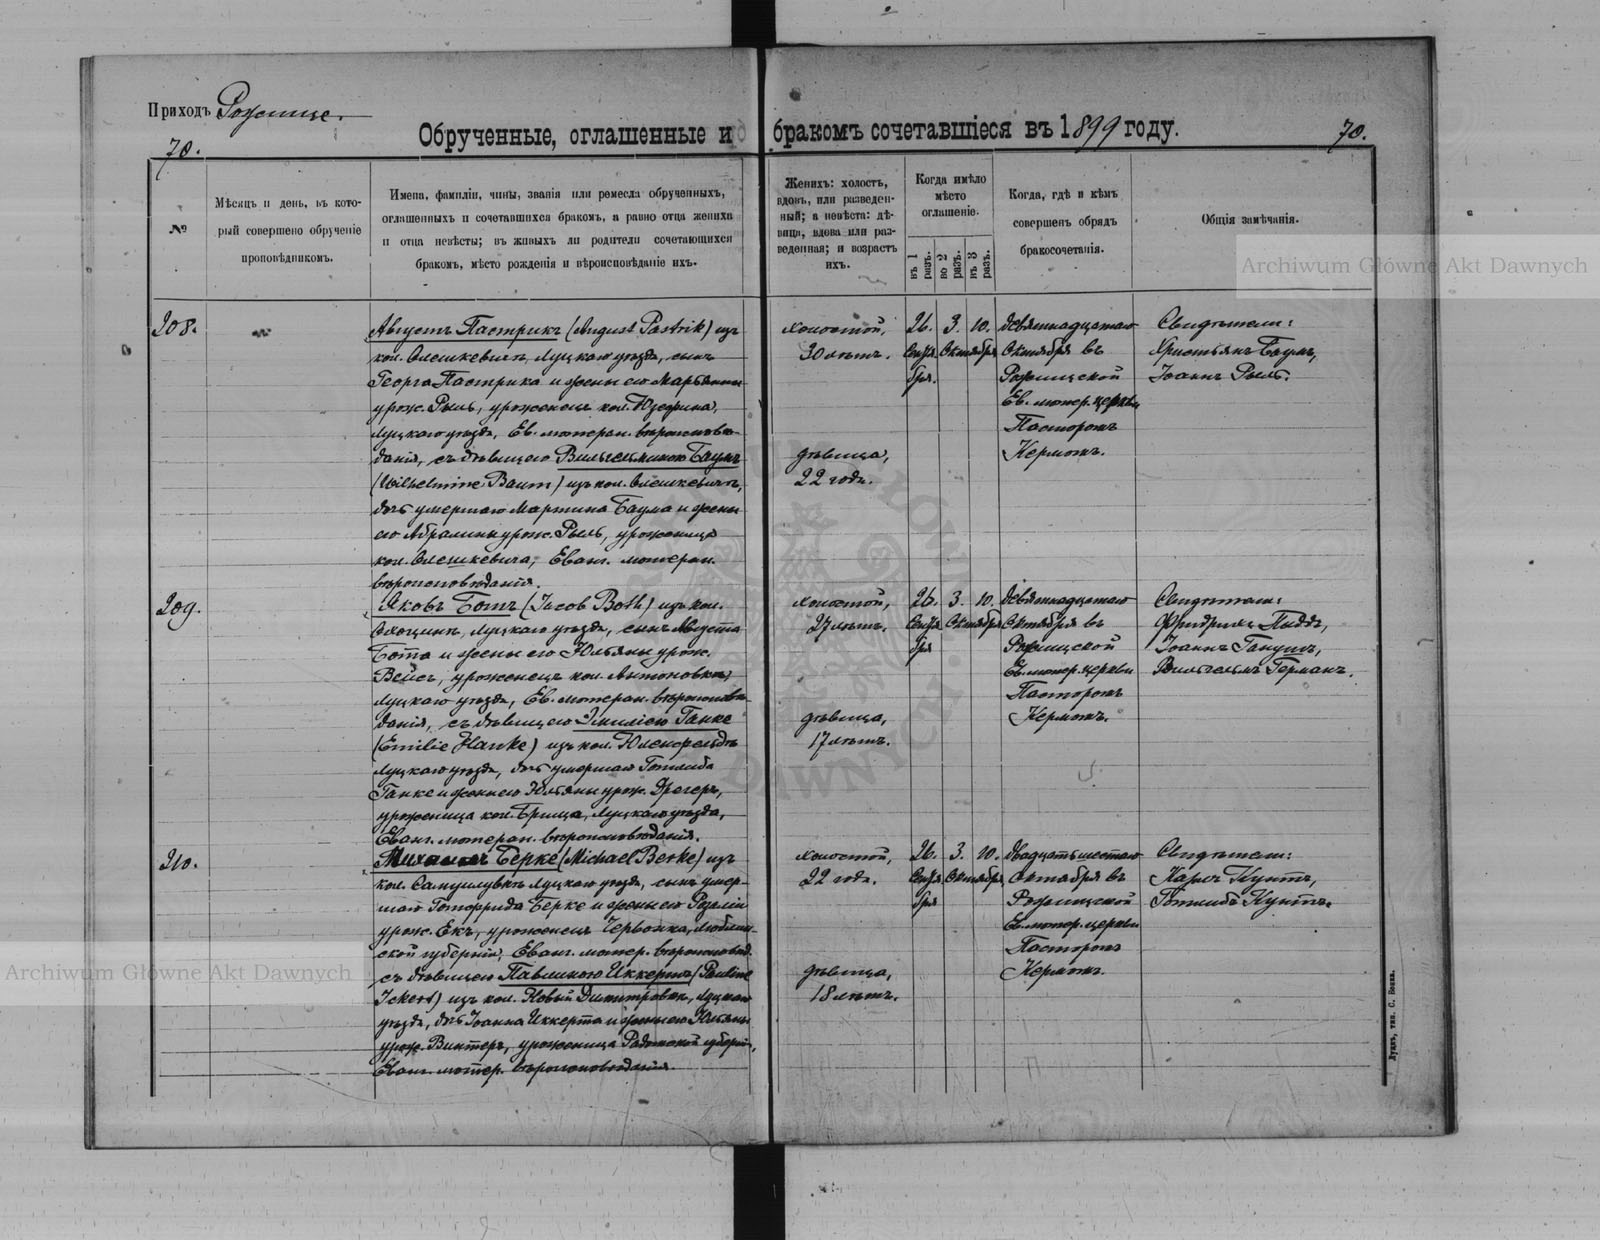 Приходъ Рожище.
Обрученные, оглашенные и бракомъ сочетавшіеся въ 1899 году.
70.
70.
№
Мѣсяцъ и день, въ кото-
рый совершено обрученіе
проповѣдникомъ.
Имена, фамиліи, чины, званія или ремесла обрученныхъ,
оглашенныхъ и сочетавшихся бракомъ, а равно отца жениха
и отца невѣсты; въ живыхъ ли родители сочетающихся
бракомъ, мѣсто рожденія и вѣроисповѣданіе ихъ.
Женихъ: холостъ,
вдовъ, или разведен-
ный; а невѣста: дѣ-
вица, вдова или раз-
веденная; и возрастъ
ихъ.
Когда имѣло
мѣсто
оглашеніе.
въ 1 разъ.
во 2 разъ.
въ 3 разъ.
Когда, гдѣ и кѣмъ
совершенъ обрядъ
бракосочетанія.
Общія замѣчанія.
208.
Августъ Пастрикъ (August Pastrik) изъ
кол. Олешкевичъ, Луцкаго уѣзда, сынъ
Георга Пастрика и жены его Марьянны
урож. Рыль, уроженецъ кол. Юзефина,
Луцкаго уѣзда, Ев. лютеран. вѣроисповѣ-
данія, съ дѣвицею Вильгельминою Баумъ
(Wilhelmine Baum) изъ кол. Олешкевичъ,
дочь умершаго Мартина Баума и жены
его урож. Рыль, уроженица
кол. Олешкевича, Еванг. лютеран.
вѣроисповѣданія.
холостой,
30 лѣтъ.
дѣвица,
22 года.
26. 3. 10.
Сентя- Октября
бря.
девятнадцатаго
Октября въ
Рожищской
Ев. лютер. церкви
Пасторомъ
Кермомъ.
Свидѣтели:
Христьянъ Баумъ,
Іоаннъ Рыль.
209.
Яковъ Ботъ (Jacob Both) изъ кол.
Луцкаго уѣзда, сынъ Августа
Бота и жены его Юльяны урож.
Вейсъ, уроженецъ кол. Антоновка,
Луцкаго уѣзда, Ев. лютеран. вѣроисповѣ-
данія, съ дѣвицею Эмиліею Ганке
(Emilie Hanke) изъ кол.
Луцкаго уѣзда, дочь умершаго Готлиба
Ганке и жены его Юльяны урож. Дрегеръ,
уроженица кол. Луцкаго уѣзда,
Еванг. лютеран. вѣроисповѣданія.
холостой,
27 лѣтъ.
дѣвица,
17 лѣтъ.
26. 3. 10.
Сентя- Октября
бря
девятнадцатаго
Октября въ
Рожищской
Ев. лютер. церкви
Пасторомъ
Кермомъ.
Свидѣтели:
Фридрихъ
Іоаннъ
Вильгельмъ Германъ.
210.
Михаилъ Берке (Michael Berke) изъ
кол. Самуилувкъ Луцкаго уѣзда, сынъ умер-
шаго Готфрида Берке и жены его Розаліи
урож. Екъ, уроженецъ Червонка, Люблин-
ской губерніи, Еванг. лютер. вѣроисповѣд.
съ дѣвицею Павлиною Иккертъ (Pauline
Ickert) изъ кол. Новый Димитровкъ, Луцкаго
уѣзда, дочь Іоанна Иккерта и жены его Юльяны
урож. Винтеръ, уроженица Радомской губерніи,
Еванг. лютер. вѣроисповѣданія.
холостой,
22 года.
дѣвица,
18 лѣтъ.
26. 3. 10.
Сентя- Октября
бря
двадцать шестаго
Октября въ
Рожищской
Ев. лютер. церкви
Пасторомъ
Кермомъ.
Свидѣтели:
Карлъ Кунтъ,
Готлибъ Кунтъ.
Луцкъ, тип. С. Бонка.
Archiwum Główne Akt Dawnych
Archiwum Główne Akt Dawnych